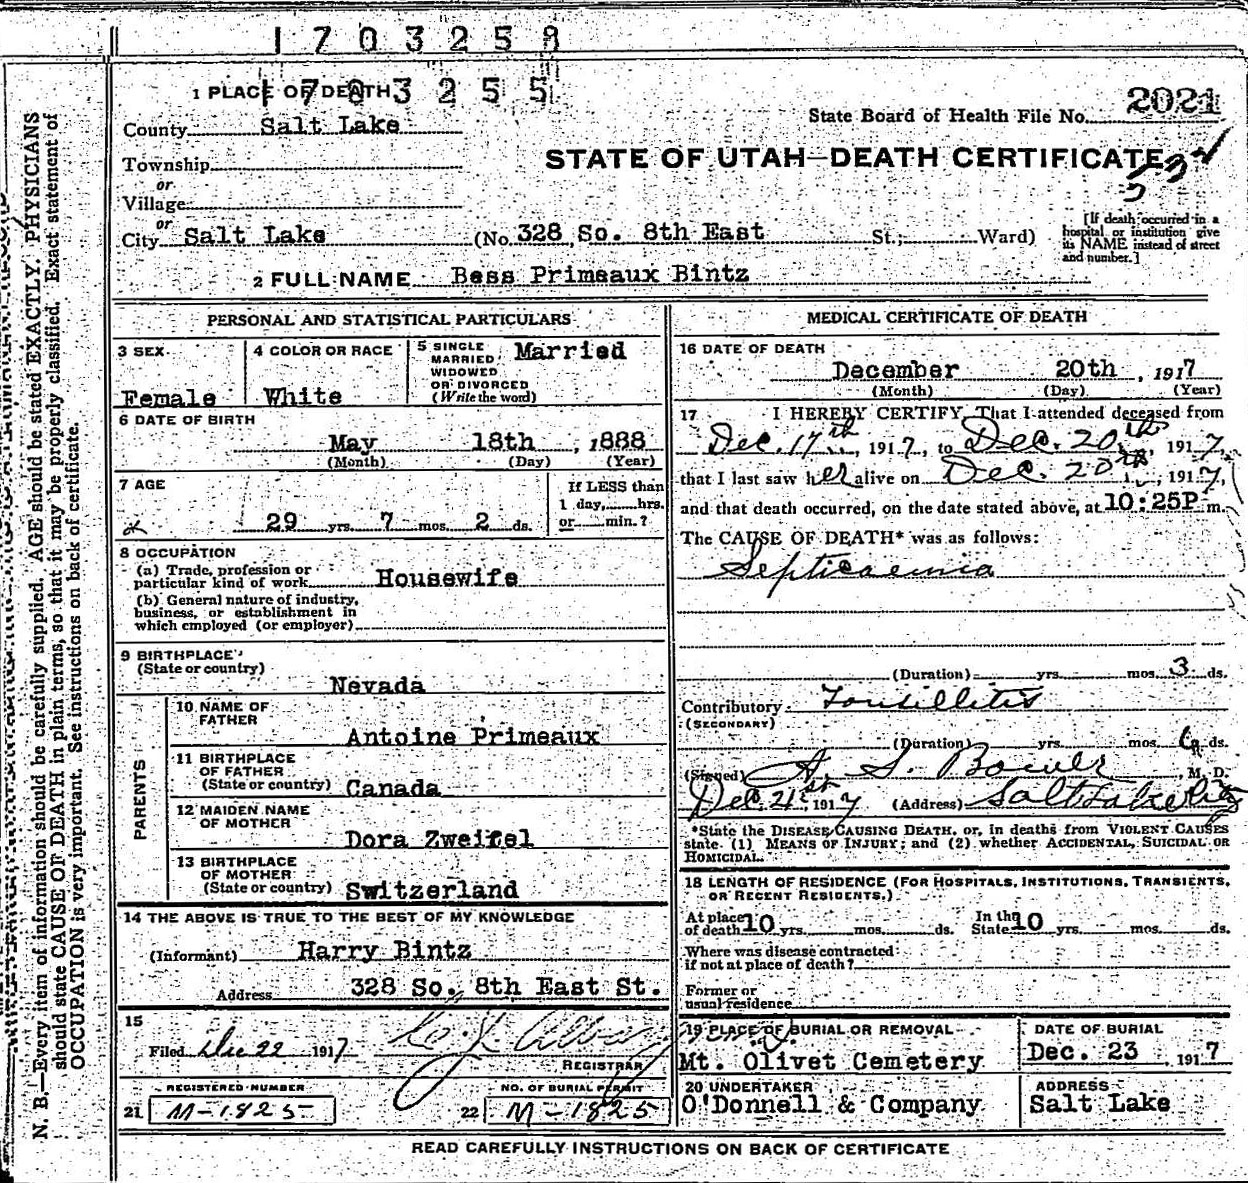 1703258
1703255
1 PLACE OF DEATH
State Board of Health File No. 2021
County Salt Lake
STATE OF UTAH—DEATH CERTIFICATE
Township
or
Village
or
City Salt Lake (No. 328 So. 8th East St.; Ward)
[If death occurred in a
hospital or institution give
its NAME instead of street
and number.]
2 FULL NAME Bess Primeaux Bintz
PERSONAL AND STATISTICAL PARTICULARS
3 SEX
Female
4 COLOR OR RACE
White
5 SINGLE
MARRIED
WIDOWED
OR DIVORCED
(Write the word)
Married
6 DATE OF BIRTH
May 18th, 1888
(Month) (Day) (Year)
7 AGE
29 yrs. 7 mos. 2 ds.
If LESS than
1 day, hrs.
or min.?
8 OCCUPATION
(a) Trade, profession or
particular kind of work Housewife
(b) General nature of industry,
business, or establishment in
which employed (or employer)
9 BIRTHPLACE
(State or country)
Nevada
PARENTS
10 NAME OF
FATHER
Antoine Primeaux
11 BIRTHPLACE
OF FATHER
(State or country) Canada
12 MAIDEN NAME
OF MOTHER
Dora Zweifel
13 BIRTHPLACE
OF MOTHER
(State or country) Switzerland
14 THE ABOVE IS TRUE TO THE BEST OF MY KNOWLEDGE
(Informant) Harry Bintz
Address 328 So. 8th East St.
15
Filed Dec 22 1917
REGISTRAR
REGISTERED NUMBER
21 M-1825
NO. OF BURIAL PERMIT
22 M-1825
MEDICAL CERTIFICATE OF DEATH
16 DATE OF DEATH
December 20th, 1917
(Month) (Day) (Year)
17 I HEREBY CERTIFY, That I attended deceased from
Dec. 17th, 1917, to Dec. 20th, 1917,
that I last saw her alive on Dec. 20th, 1917,
and that death occurred, on the date stated above, at 10:25P m.
The CAUSE OF DEATH* was as follows:
Septicaemia
(Duration) yrs. mos. 3 ds.
Contributory Tonsillitis
(SECONDARY)
(Duration) yrs. mos. 6 ds.
(Signed) A. S. Bower, M. D.
Dec. 21st 1917 (Address) Salt Lake City
*State the DISEASE CAUSING DEATH, or, in deaths from VIOLENT CAUSES
state (1) MEANS OF INJURY; and (2) whether ACCIDENTAL, SUICIDAL OR
HOMICIDAL.
18 LENGTH OF RESIDENCE (FOR HOSPITALS, INSTITUTIONS, TRANSIENTS,
OR RECENT RESIDENTS.)
At place
of death 10 yrs. mos. ds.
In the
State 10 yrs. mos. ds.
Where was disease contracted
if not at place of death?
Former or
usual residence
19 PLACE OF BURIAL OR REMOVAL
Mt. Olivet Cemetery
DATE OF BURIAL
Dec. 23, 1917
20 UNDERTAKER
O'Donnell & Company
ADDRESS
Salt Lake
READ CAREFULLY INSTRUCTIONS ON BACK OF CERTIFICATE
N. B.—Every item of information should be carefully supplied. AGE should be stated EXACTLY. PHYSICIANS
should state CAUSE OF DEATH in plain terms, so that it may be properly classified. Exact statement of
OCCUPATION is very important. See instructions on back of certificate.